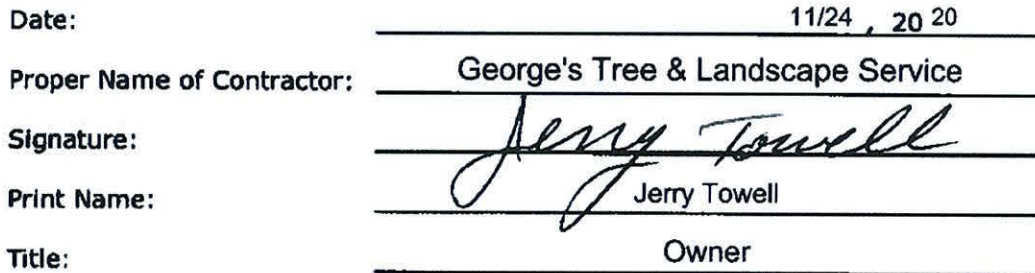 Date: 11/24 , 20 20
Proper Name of Contractor: George's Tree & Landscape Service
Signature: Jerry Towell
Print Name: Jerry Towell
Title: Owner